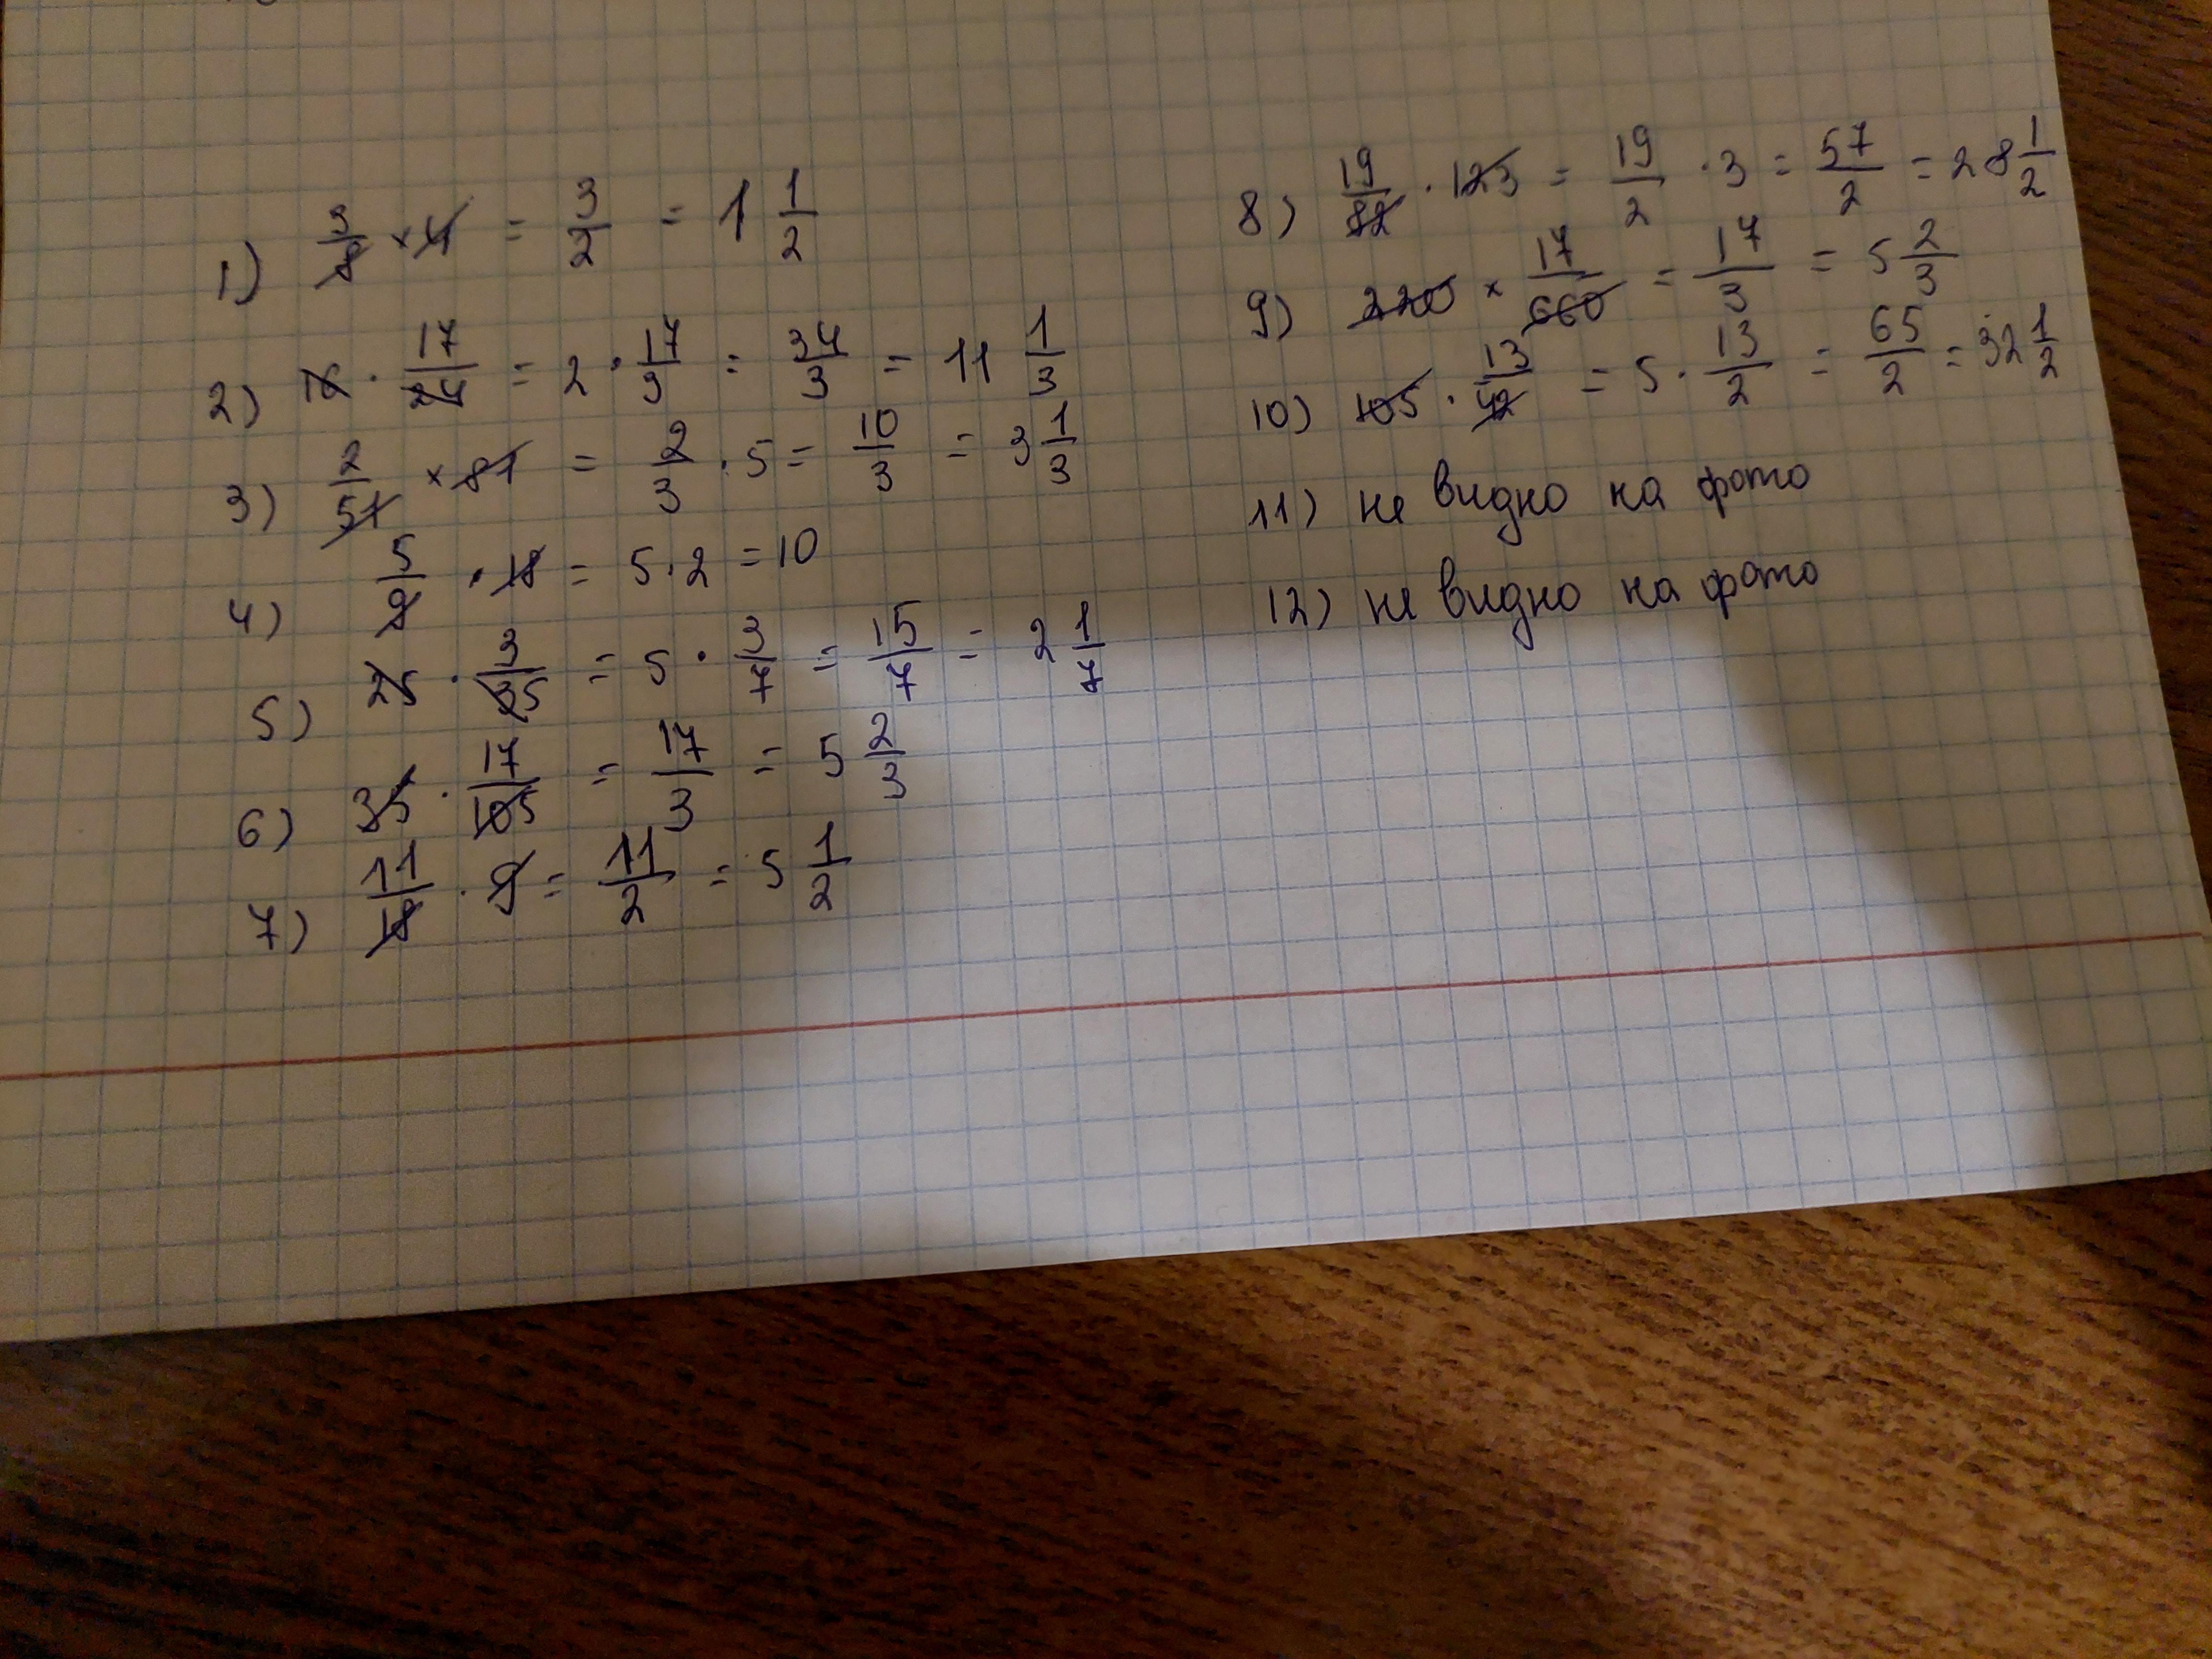 1) 3/8 × 4 = 3/2 = 1 1/2
2) 16 · 17/24 = 2 · 17/3 = 34/3 = 11 1/3
3) 2/51 × 81 = 2/3 · 5 = 10/3 = 3 1/3
4) 5/9 · 18 = 5 · 2 = 10
5) 25 · 3/35 = 5 · 3/7 = 15/7 = 2 1/7
6) 35 · 17/105 = 17/3 = 5 2/3
7) 11/18 · 9 = 11/2 = 5 1/2
8) 19/82 · 123 = 19/2 · 3 = 57/2 = 28 1/2
9) 220 × 17/660 = 17/3 = 5 2/3
10) 105 · 13/42 = 5 · 13/2 = 65/2 = 32 1/2
11) не видно на фото
12) не видно на фото